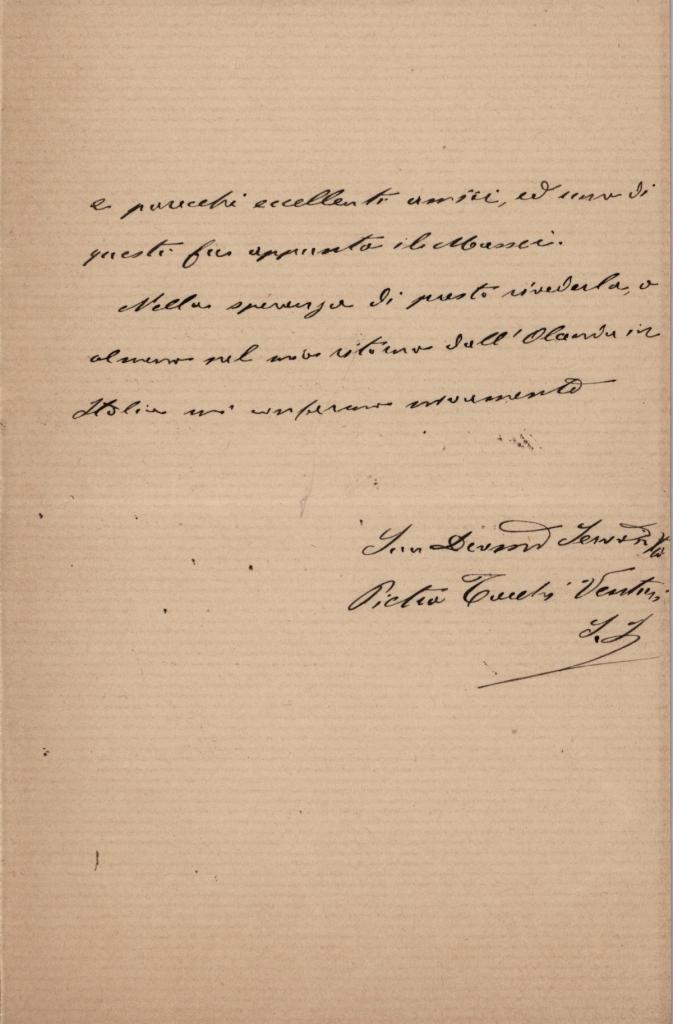 e parecchi eccellenti amici, ed uno di
questi fu appunto il Massei.
Nella speranza di presto rivederla, o
almeno nel mio ritorno dall'Olanda in
Italia mi confermo nuovamente
Suo Devmo Servo
Pietro Tacchi Venturi
S.J.